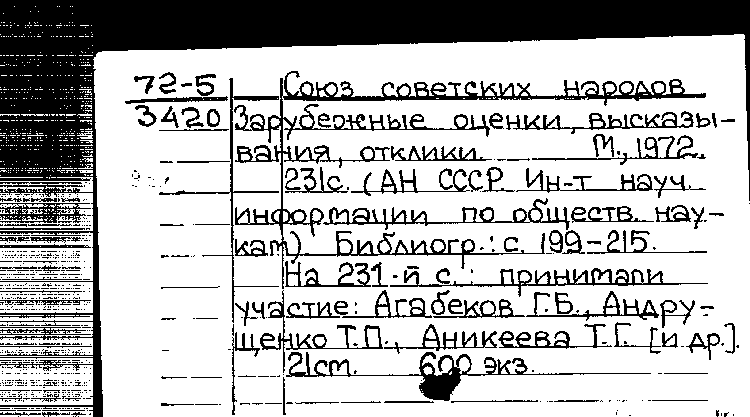 72-5 Союз советских народов
3420 Зарубежные оценки, высказы-
вания, отклики. М., 1972.
231с. (АН СССР Ин-т науч.
информации по обществ. нау-
кам). Библиогр.: с. 199-215.
На 231-й с.: принимали
участие: Агабеков Г.Б., Андру-
щенко Т.П., Аникеева Т.Г. [и др.].
21см. 600 экз.